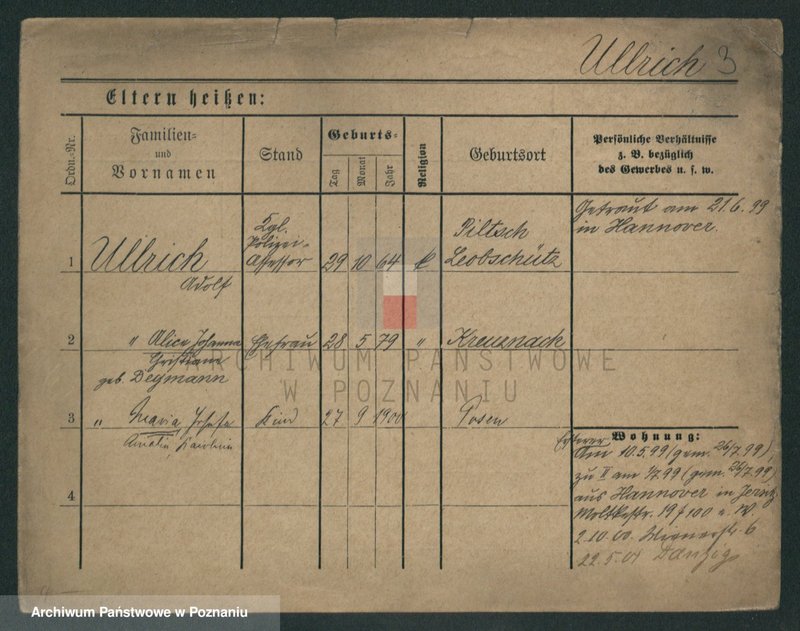 Ullrich 3
Eltern heißen:
Ordn.-Nr.
Familien-
und
Vornamen
Stand
Geburts-
Tag
Monat
Jahr
Religion
Geburtsort
Persönliche Verhältnisse
z. B. bezüglich
des Gewerbes u. s. w.
1
Ullrich
Adolf
Kgl.
Polizei-
Assessor
29 10 64
k
Piltsch
Leobschütz
Getraut am 21.6.99
in Hannover.
2
" Alice Johanna
Christiane
geb. Deymann
Ehefrau
28 5 79
"
Kreuznach
ARCHIWUM PAŃSTWOWE
W POZNANIU
3
" Maria Josefa
Amalie
Kind
27 9 1900
Posen
Wohnung:
Ersterer
Am 10.5.99 (gem. 26/7.99),
zu II am 1/7.99 (gem. 26/7.99)
aus Hannover in
4
Moltkestr. 19
2.10.00. Wienerstr. 6
22.5.01 Danzig
Archiwum Państwowe w Poznaniu